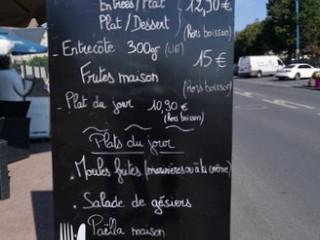 Entrées / Plat
Plat / Dessert
12,90 €
(Hors boisson)
- Entrecôte 300gr (UE)
Frites maison
15 €
(Hors boisson)
- Plat du jour 10,90 €
(Hors boisson)
Plats du jour
. Moules frites (marinières ou à la crème)
. Salade de gésiers
. Paëlla maison